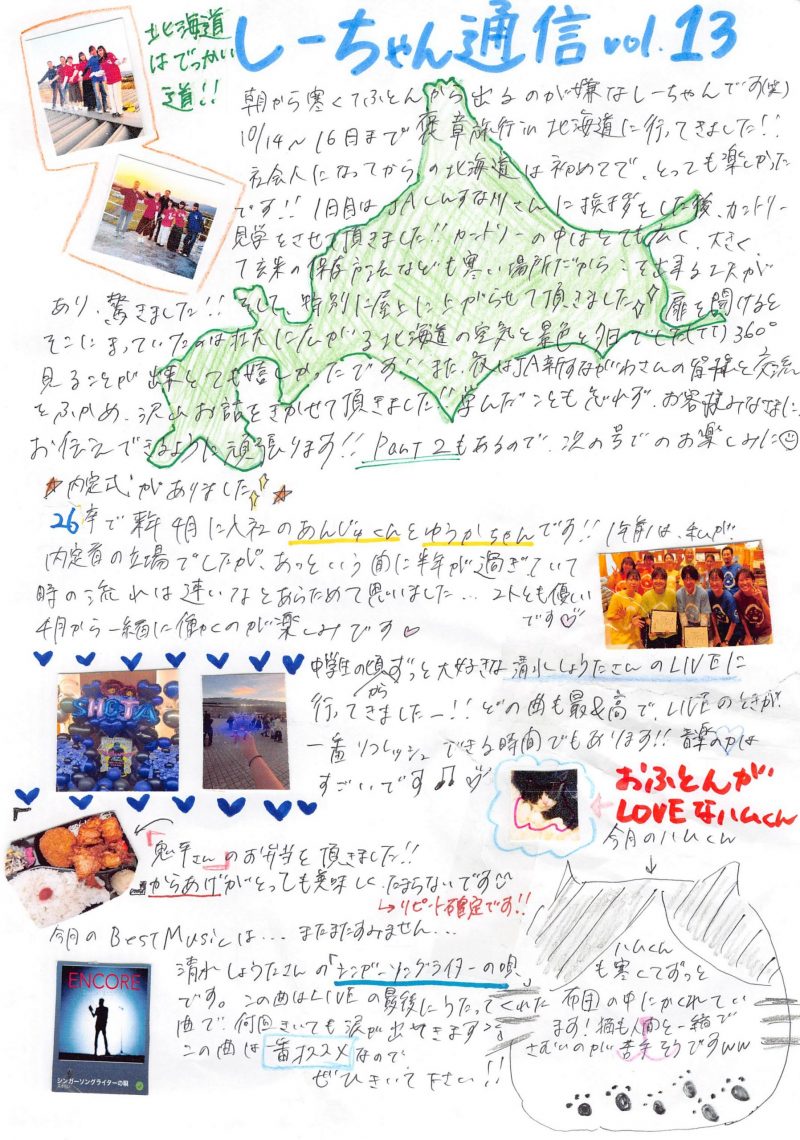 北海道
はでっかい
道!!
しーちゃん通信 vol.13
朝から寒くてふとんから出るのが嫌なしーちゃんです(笑)
10/14～16日まで褒章旅行in北海道に行ってきました!!
社会人になってからの北海道は初めてで、とっても楽しかった
です!! 1日目はJAしんすながわさんに挨拶をした後、カントリー
見学をさせて頂きました!! カントリーの中はとても広く、大きく、
て玄米の保存方法なども寒い場所だからこそ出来る工夫が
あり、驚きました!! そして、特別に屋上に上がらせて頂きました 扉を開けると
そこにまっていたのは壮大に広がる北海道の空気と景色と夕日でした 360°
見ることが出来とても嬉しかったです!! また、夜はJA新すながわさんの皆様と交流
をふかめ、沢山お話をきかせて頂きました!! 学んだことも忘れず、お客様みなさまに、
お伝えできるように頑張ります!! Part 2もあるので、次の号でのお楽しみに
内定式がありました
26卒で来年4月に入社のあんじゅくんとゆうかちゃんです!! 1年前は、私が、
内定者の立場でしたが、あっという間に半年が過ぎていて
時の流れは速いなとあらためて思いました… 2人とも優しい
です♡
4月から一緒に働くのが楽しみです♡
中学生の頃からずっと大好きな清水しょうたさんのLIVEに
行ってきましたー!! どの曲も最&高で、LIVEのときが、
一番リフレッシュできる時間でもあります!! 音楽の力は
すごいです♫♡
SHOTA
おふとんが
LOVEなハムくん
今月のハムくん
鬼平さんのお弁当を頂きました!!
からあげがとっても美味しくたまらないです
↳リピート確定です!!
今月のBest Musicは…またまたすみません…
清水しょうたさんの「シンガーソングライターの唄」
です。この曲はLIVEの最後にうたってくれた
曲で何回きいても涙が出てきます
この曲は一番オススメなので、
ぜひきいて下さい!!
ENCORE
シンガーソングライターの唄
ハムくん
も寒くてずっと
布団の中にかくれてい
ます! 猫も人間と一緒で
さむいのが苦手そうですww